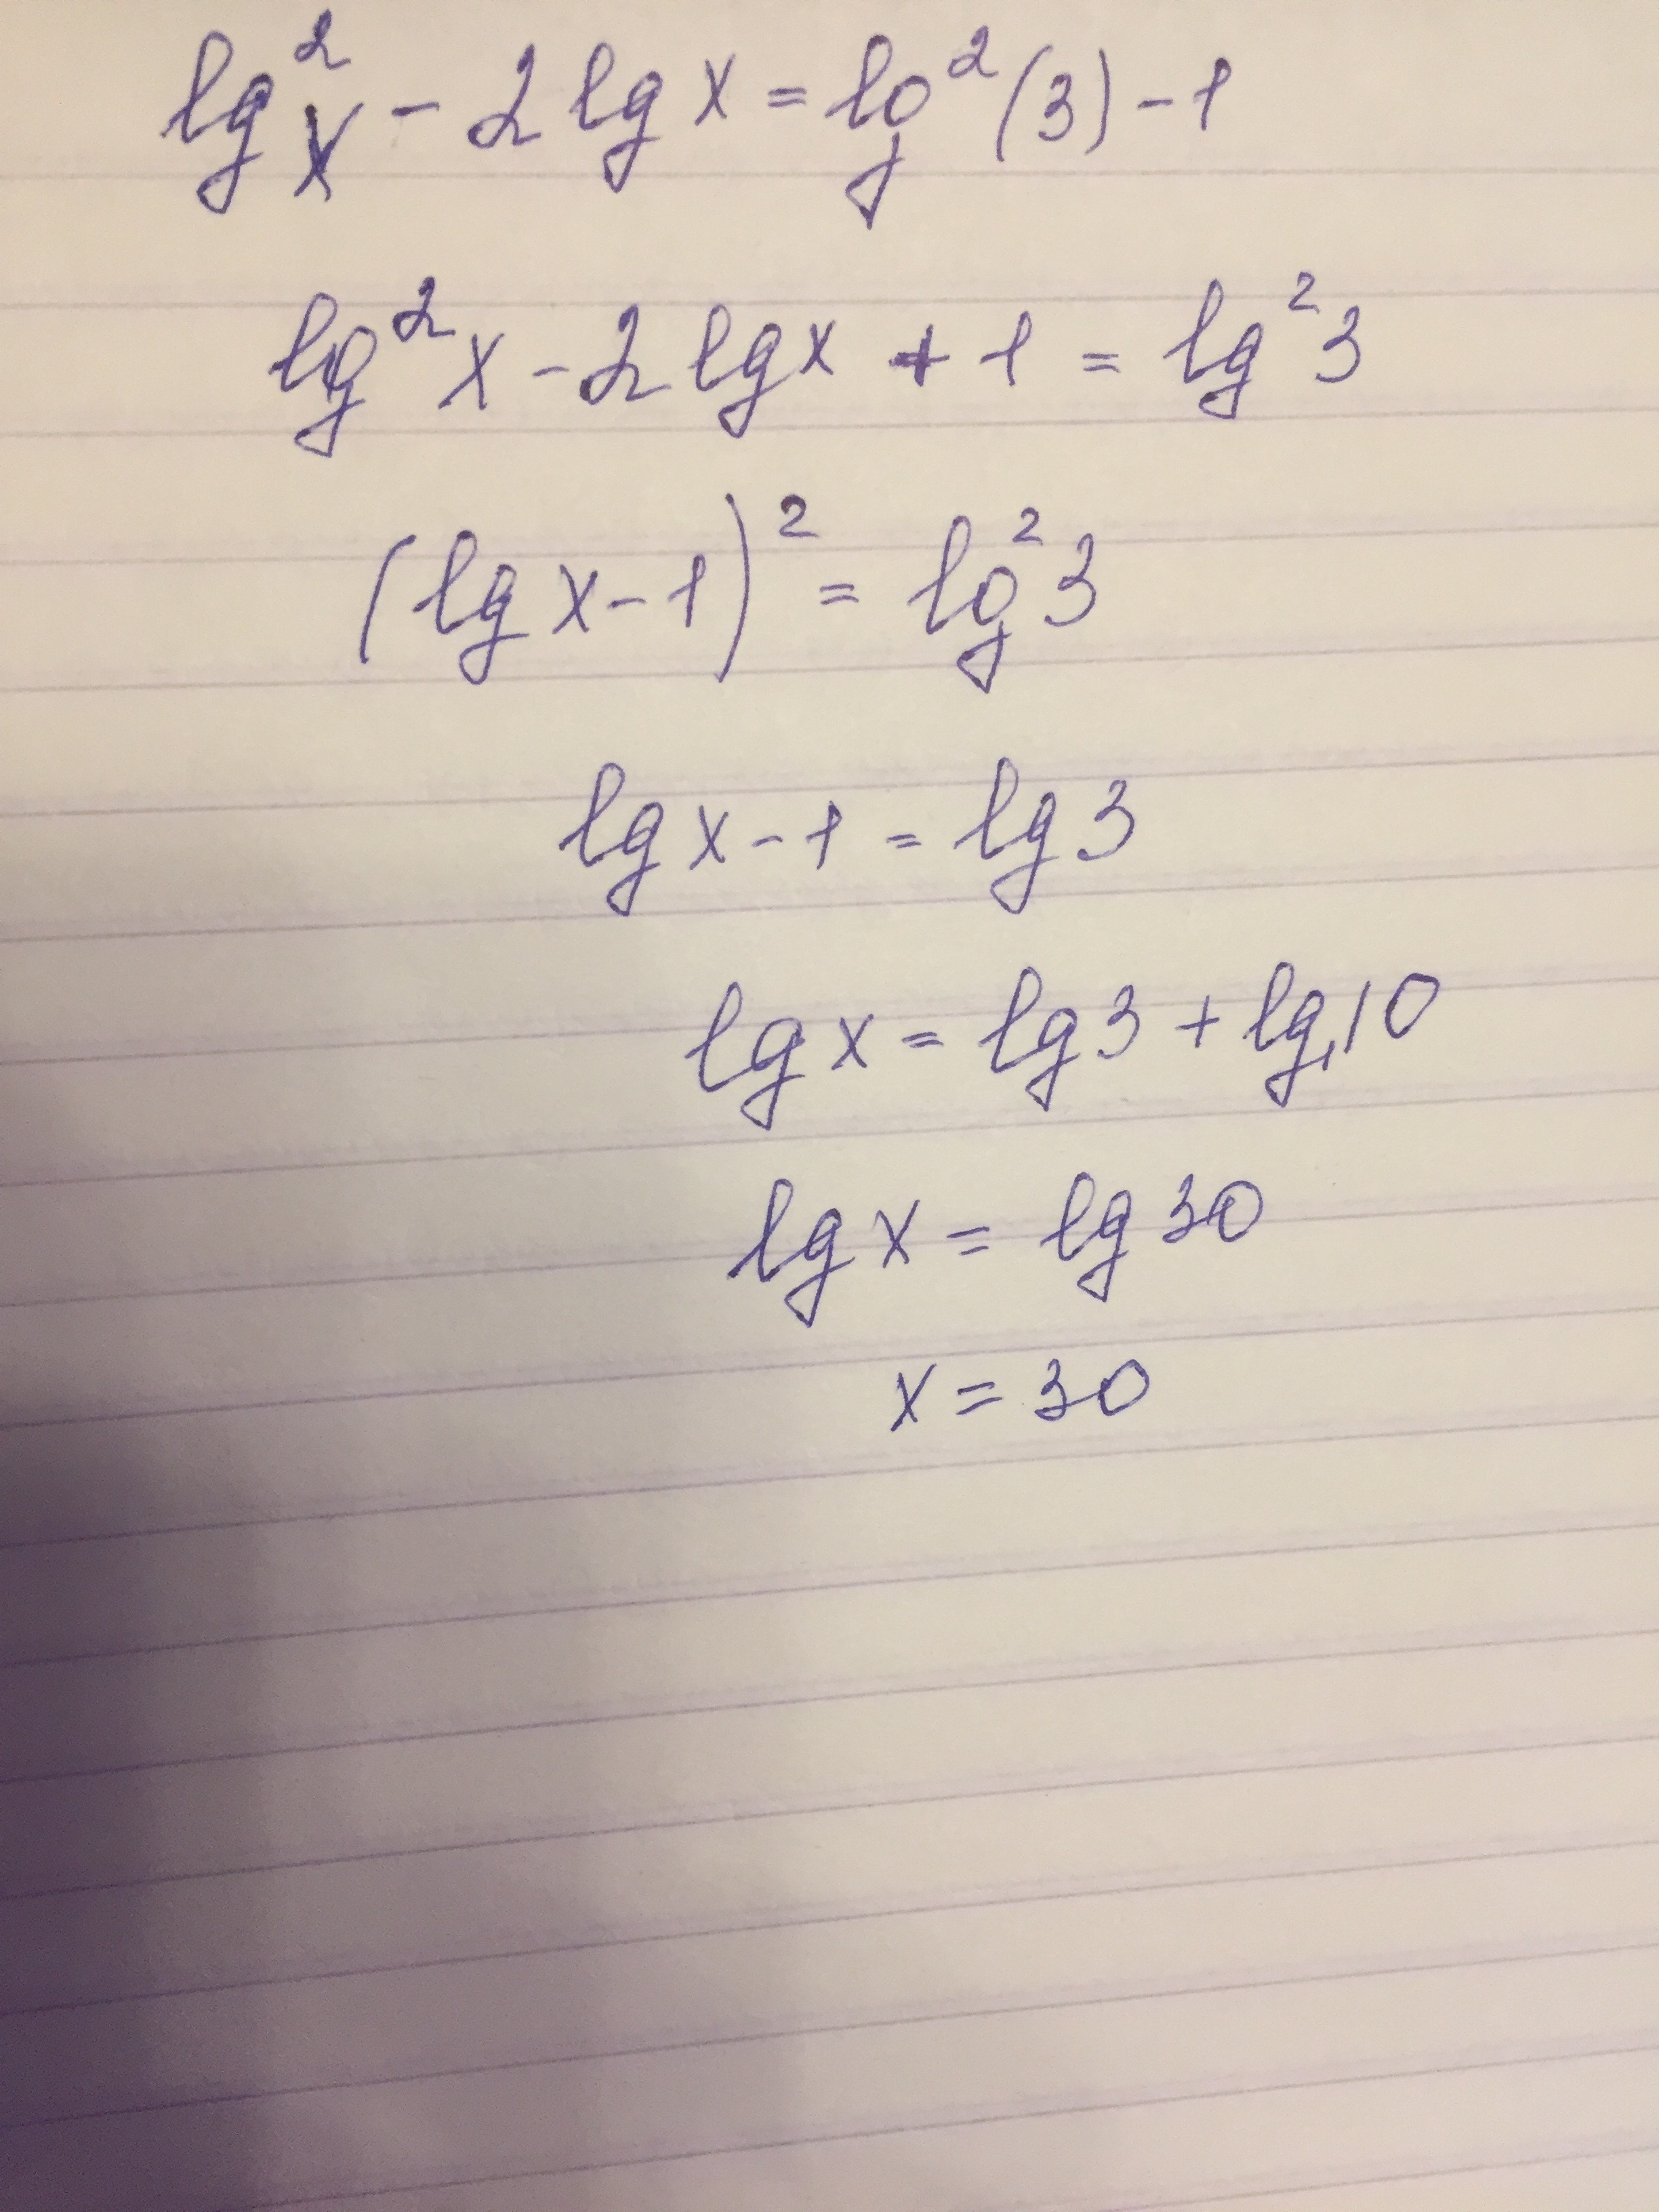 lg²x - 2 lg x = lg²(3) - 1
lg²x - 2 lg x + 1 = lg²3
(lg x - 1)² = lg²3
lg x - 1 = lg 3
lg x = lg 3 + lg 10
lg x = lg 30
x = 30